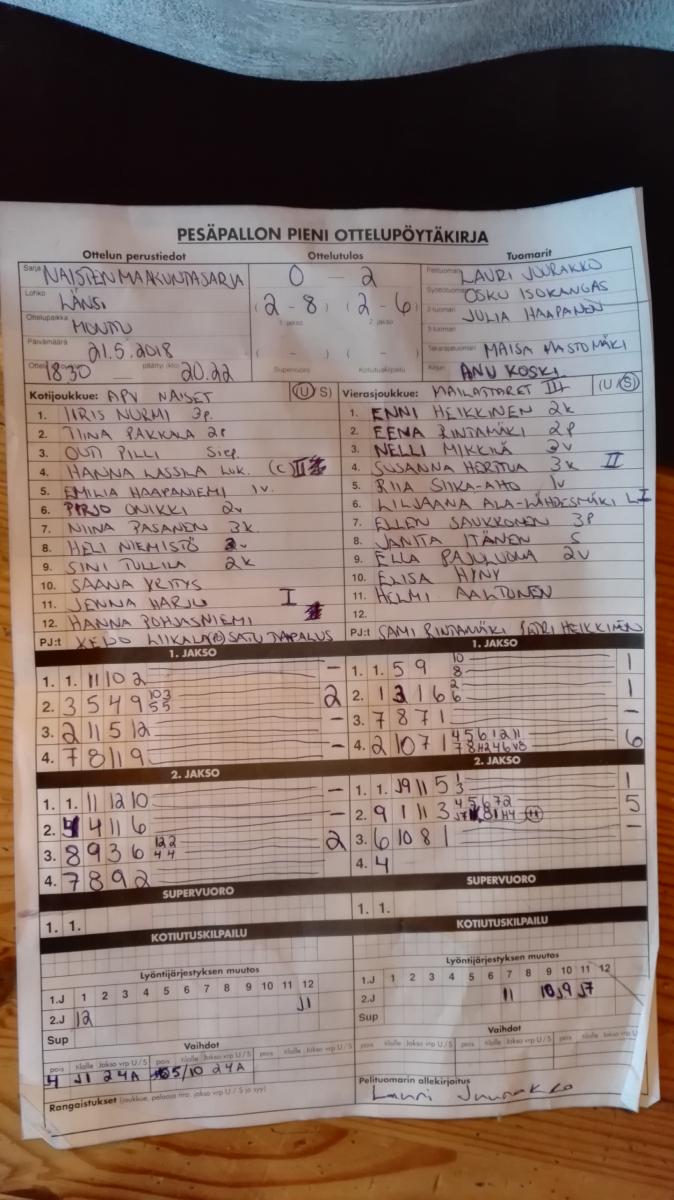 PESÄPALLON PIENI OTTELUPÖYTÄKIRJA
Ottelun perustiedot Ottelutulos Tuomarit
Sarja NAISTEN MAAKUNTASARJA 0 – 2 LAURI JUURAKKO
Lohko LÄNSI (2 - 8) (2 - 6) OSKU ISOKANGAS
1. jakso 2. jakso JULIA HAAPANEN
Ottelupaikka
Päivämäärä 21.5.2018 ( - ) ( - ) MAISA
18.30 — päättyi (klo) 20.22 Supervuoro Kotiutuskilpailu ANU KOSKI
Kotijoukkue: APV NAISET (U/S) Vierasjoukkue: MAILATTARET III (U/S)
1. IIRIS NURMI 3p. 1. ENNI HEIKKINEN 2k
2. TIINA PAKKALA 2p 2. EENA RINTAMÄKI 2p
3. OUTI PILLI Siep. 3. NELLI MIKKILÄ 2v
4. HANNA LASSILA Luk. (c) 4. SUSANNA HERTTUA 3k II
5. EMILIA HAAPANIEMI 1v. 5. RIIA SIIKA-AHO 1v
6. PIRJO ONKKI 2v 6. LILJAANA ALA-LÄHDESMÄKI L I
7. NIINA PASANEN 3k. 7. ELLEN SAUKKONEN 3p
8. HELI NIEMISTÖ 8. JANITA ITÄNEN S
9. SINI TULLILA 2k 9. ELLA PAJULUOMA 2v
10. SAANA YRITYS 10. ELISA HYNY
11. JENNA HARJU I 11. HELMI AALTONEN
12. HANNA POHJASNIEMI 12.
PJ:t SATU TAPALUS PJ:t SAMI RINTAMÄKI HEIKKINEN
1. JAKSO 1. JAKSO
1. 1. 11 10 2 – 1. 1. 5 9 10 8 1
2. 3 5 4 9 10 3 5 5 2 2. 1 3 1 6 2 6 1
3. 2 11 5 12 – 3. 7 8 7 1 –
4. 7 8 11 9 – 4. 2 10 7 1 6
2. JAKSO 2. JAKSO
1. 1. 11 12 10 – 1. 1. J9 11 5 1 3 1
2. 4 11 6 – 2. 9 1 11 3 5
3. 8 9 3 6 12 2 4 4 2 3. 6 10 8 1 –
4. 7 8 9 2 4. 4
SUPERVUORO SUPERVUORO
1. 1. 1. 1.
KOTIUTUSKILPAILU KOTIUTUSKILPAILU
Lyöntijärjestyksen muutos Lyöntijärjestyksen muutos
1 2 3 4 5 6 7 8 9 10 11 12 1 2 3 4 5 6 7 8 9 10 11 12
1.J J1 1.J
2.J 12 2.J 11 10 J9 J7
Sup Sup
Vaihdot Vaihdot
pois tilalle Jakso vrp U/S pois tilalle Jakso vrp U/S pois tilalle Jakso vrp U/S
4 J1 2 4A 5/10 2 4A
Rangaistukset (joukkue, pelaaja nro, jakso vrp U/S ja syy) Pelituomarin allekirjoitus
Lauri Juurakko